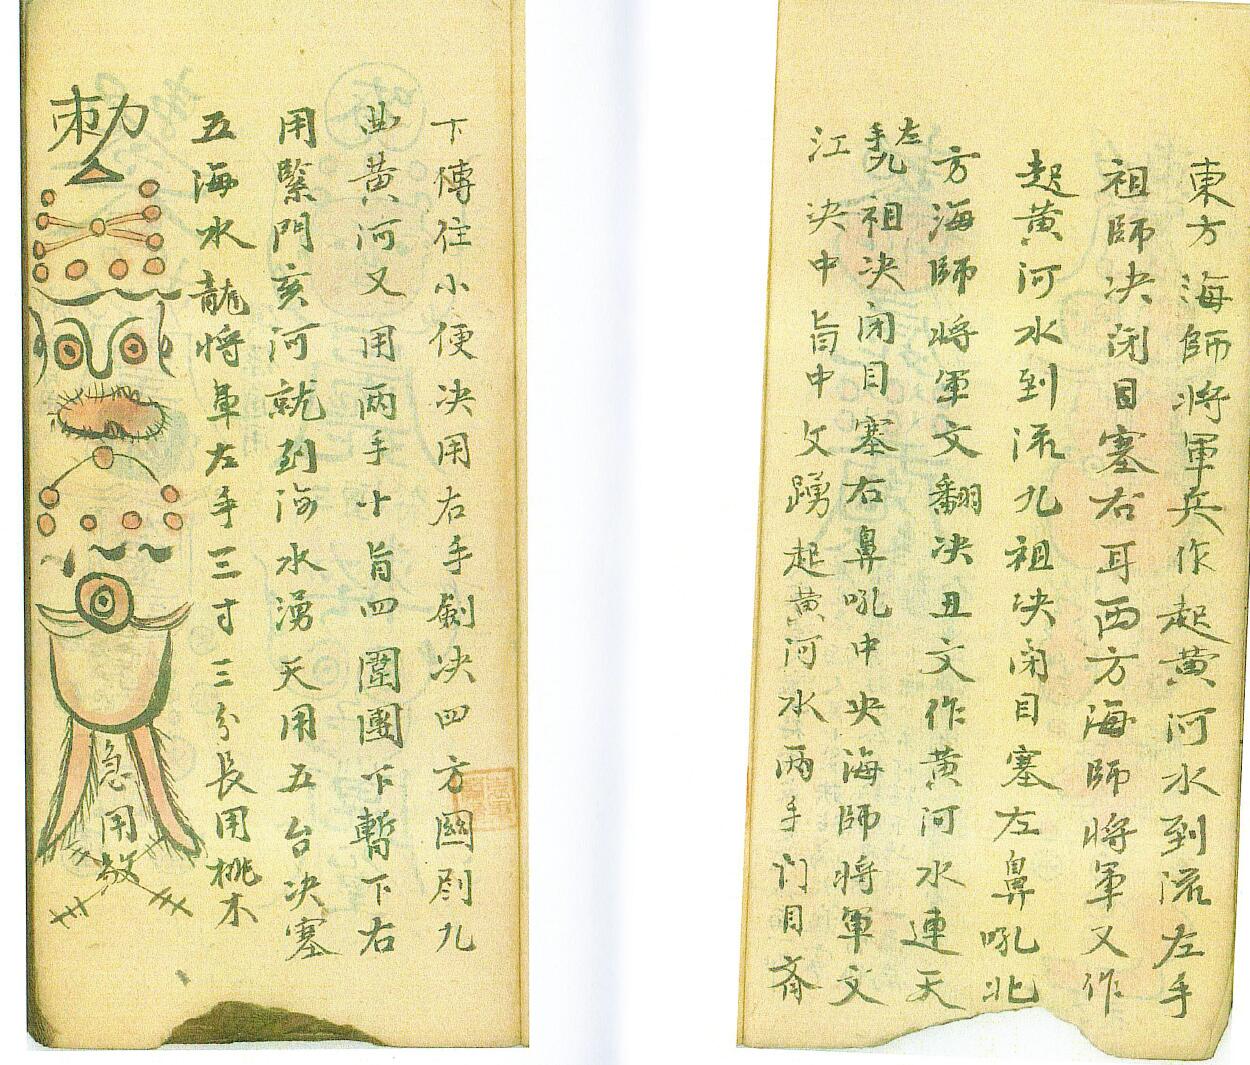 東方海師將軍兵作起黃河水到流左手
祖師决闭目塞右耳西方海師將軍又作
起黄河水到流九祖决闭目塞左鼻吼北
方海師將軍文翻决丑文作黃河水連天
左手九祖决闭目塞右鼻吼中央海師將軍文
江决中旨中攵踴起黄河水兩手门目齐
下傅住小便决用右手劍决四方國刷九
曲黄河又用兩手十旨四圍團下暫下右
用緊門亥河就到海水湧天用五台决塞
五海水龍將軍左手三寸三分長用桃木
勅
急用敇